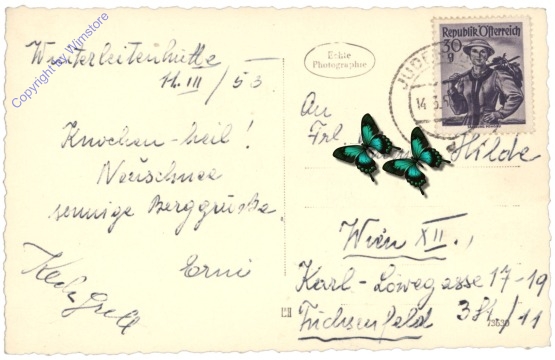 Copyright by Wimstore
Winterleitenhütte
11. III / 53
Knochen-heil!
Neuschnee
sonnige Berggrüße
Erni
Echte
Photographie
Republik Österreich
30
g
JUD
14.3.5
An
Frl
Hilde
Wien XII.,
Karl-Löwegasse 17-19
Fuchsenfeld 384/11
73639